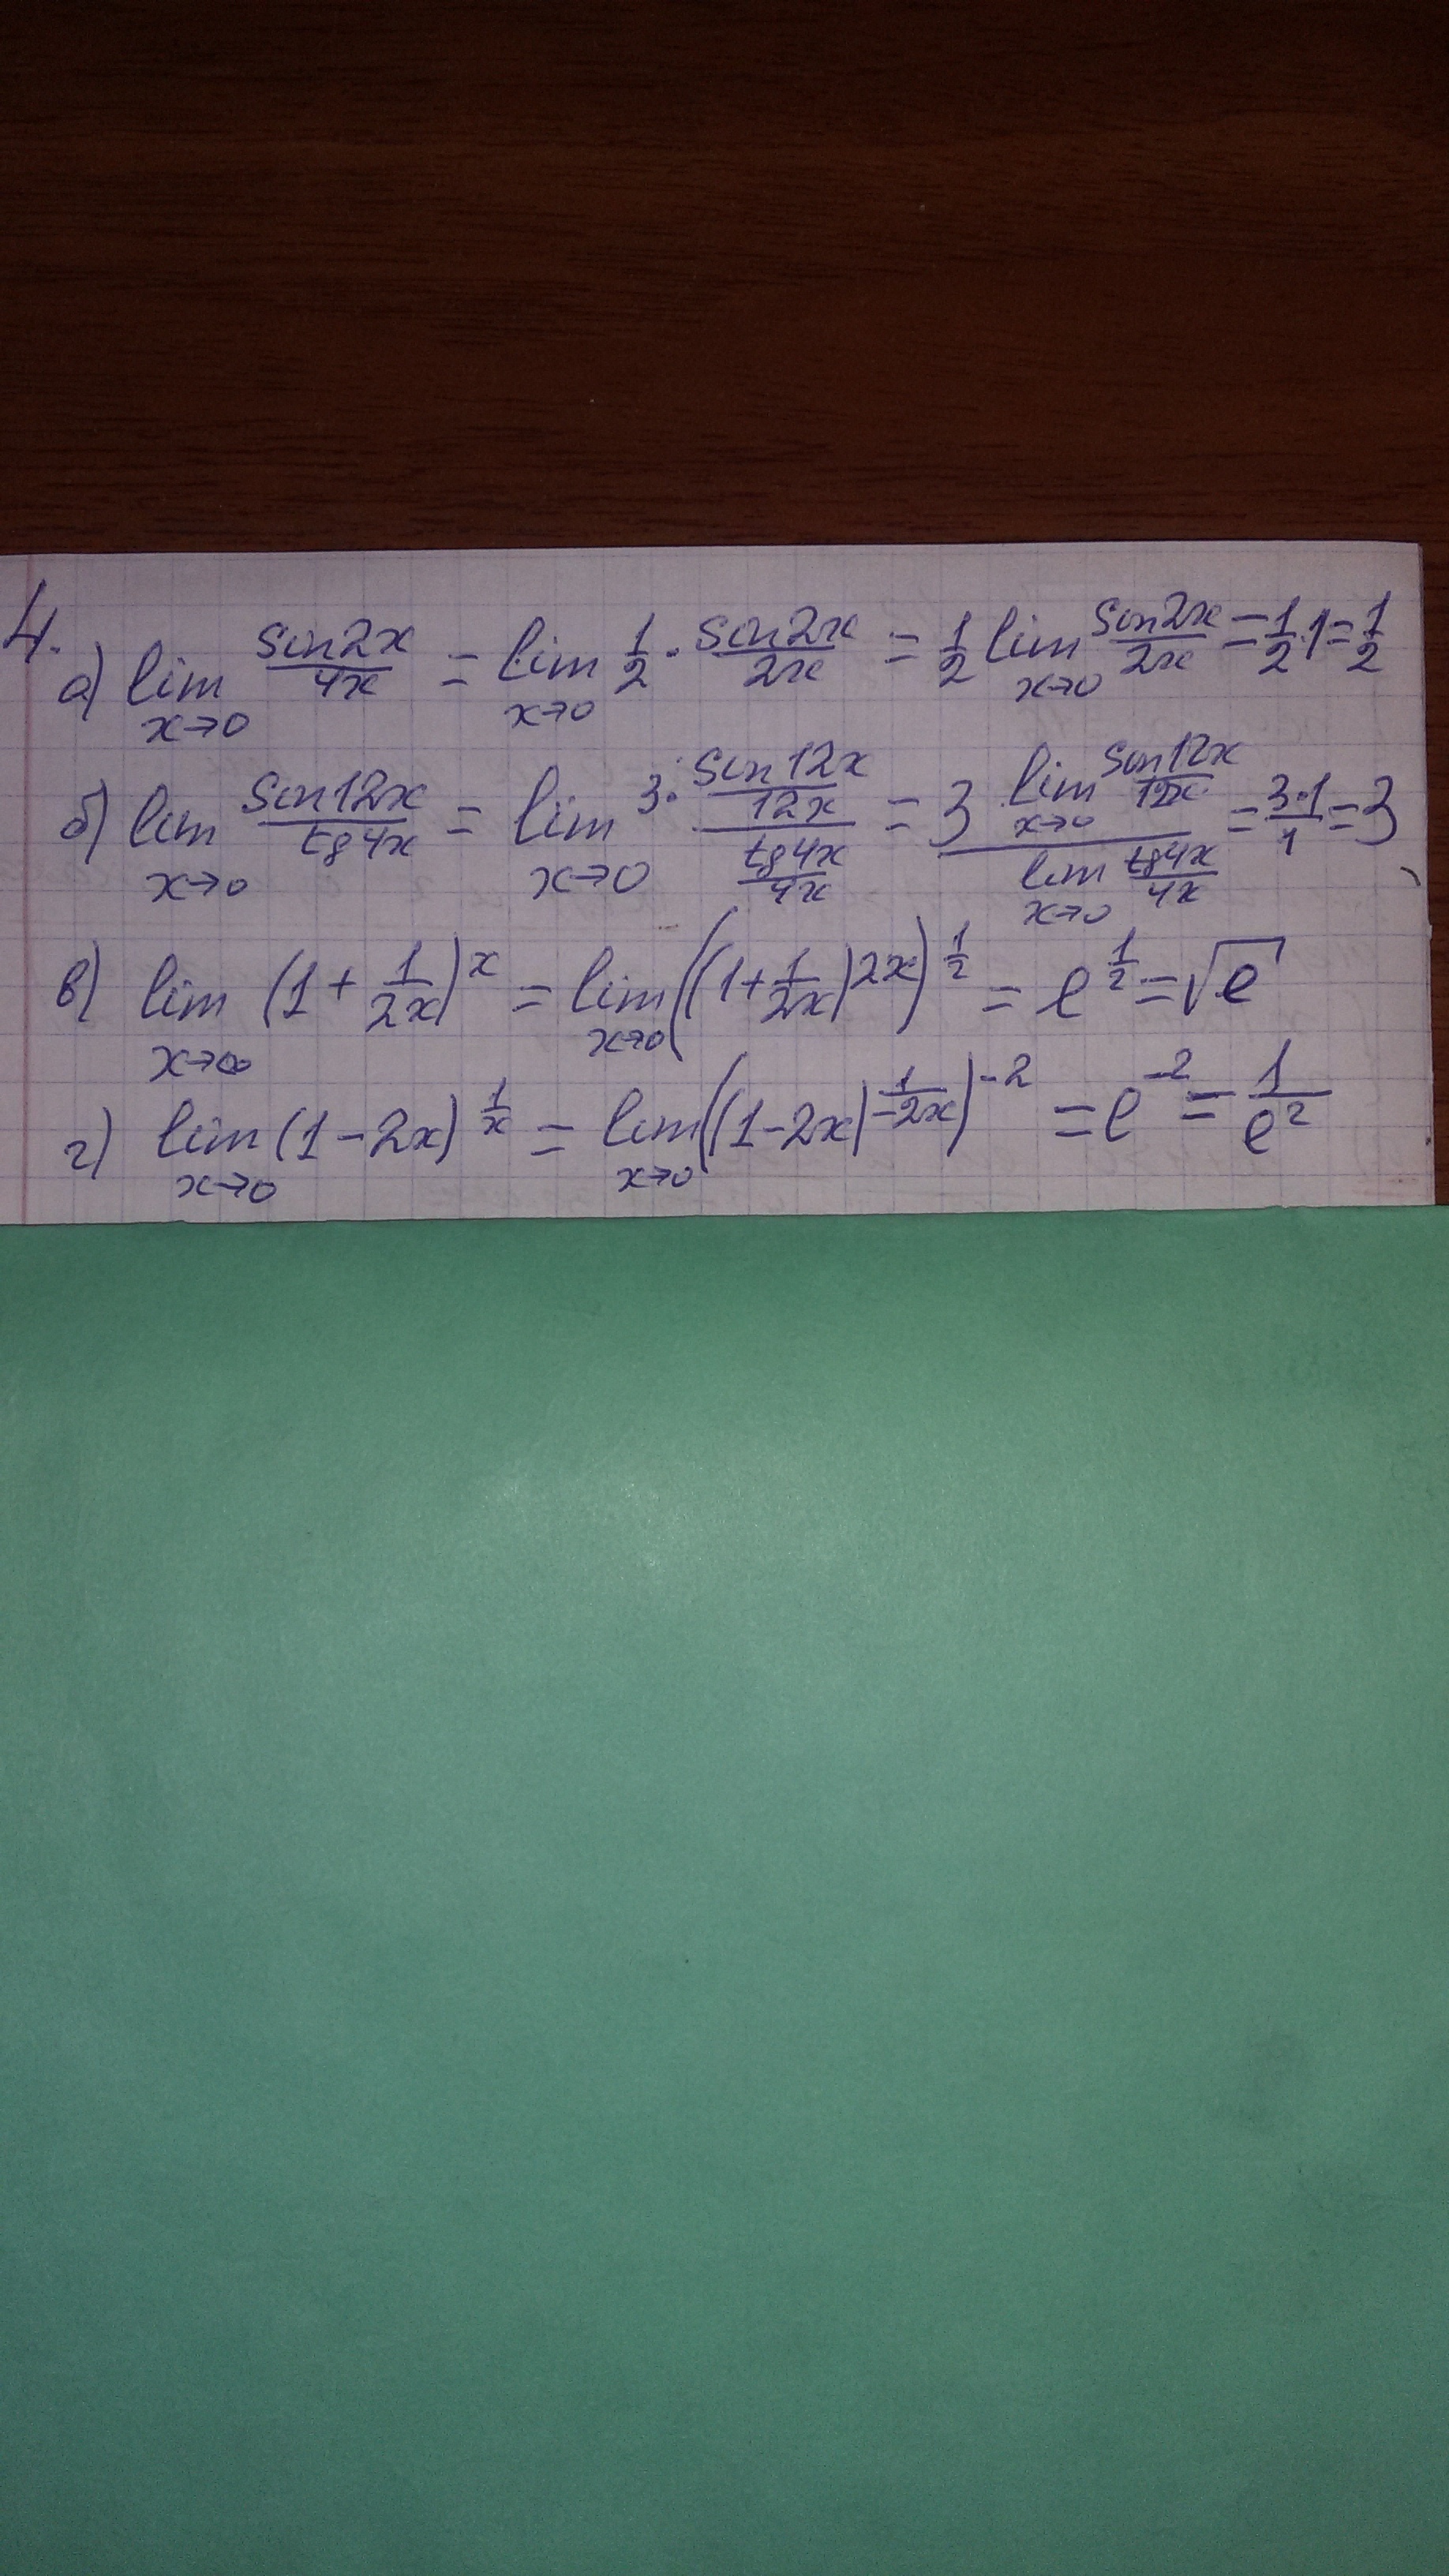 4.
а) lim x→0 sin2x/4x = lim x→0 1/2 · sin2x/2x = 1/2 lim x→0 sin2x/2x = 1/2·1 = 1/2
б) lim x→0 sin12x/tg4x = lim x→0 3· (sin12x/12x)/(tg4x/4x) = 3 lim x→0 sin12x/12x / lim x→0 tg4x/4x = 3·1/1 = 3
в) lim x→∞ (1+1/2x)^x = lim x→0 ((1+1/2x)^2x)^1/2 = e^1/2 = √e
г) lim x→0 (1-2x)^1/x = lim x→0 ((1-2x)^1/-2x)^-2 = e^-2 = 1/e²